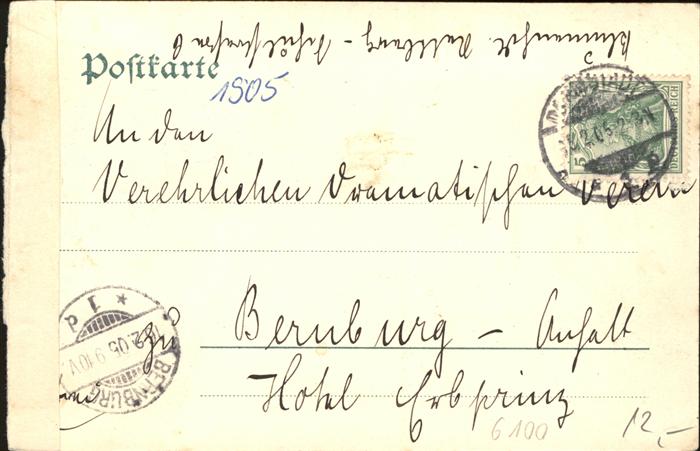 Postkarte
1905
An den
Verehrlichen Dramatischen Verein
zu Bernburg – Anhalt
Hotel Erbprinz
6100
12,–
5
DEUTSCHES REICH
BERNBURG
12.2.05.9-10V.
* 1 d